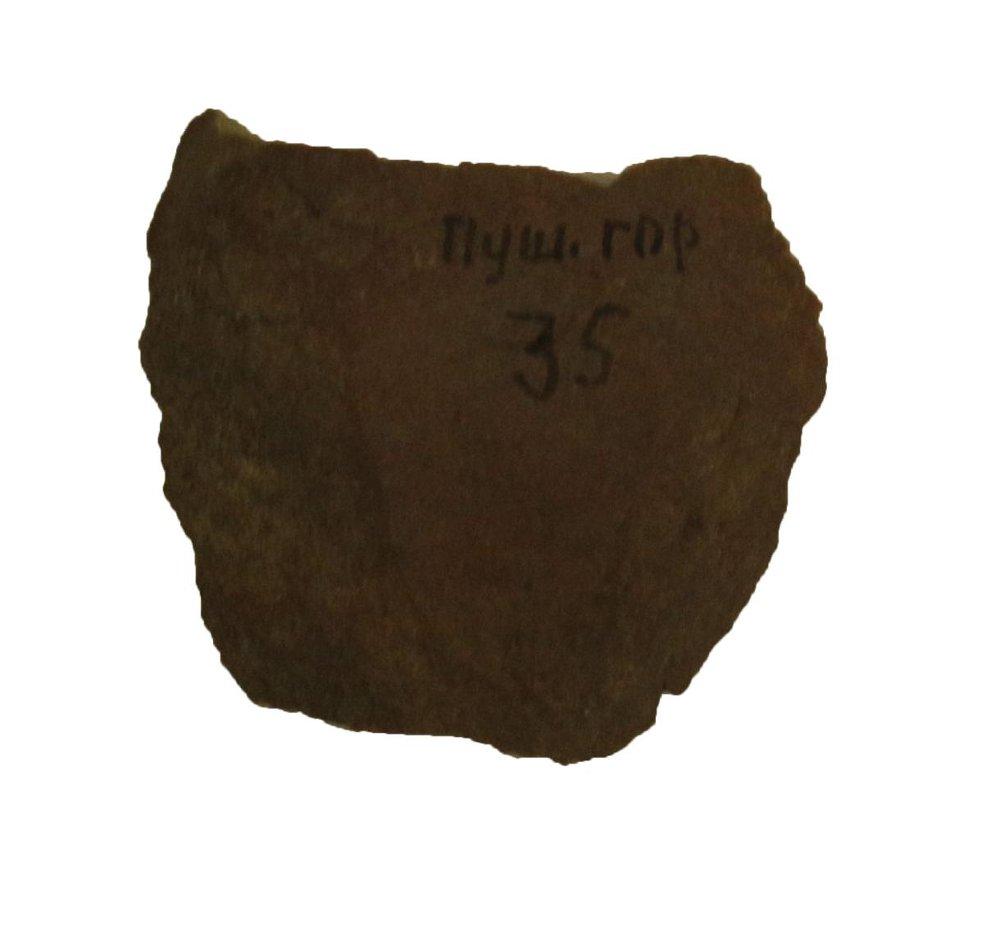 Пуш. гор
35